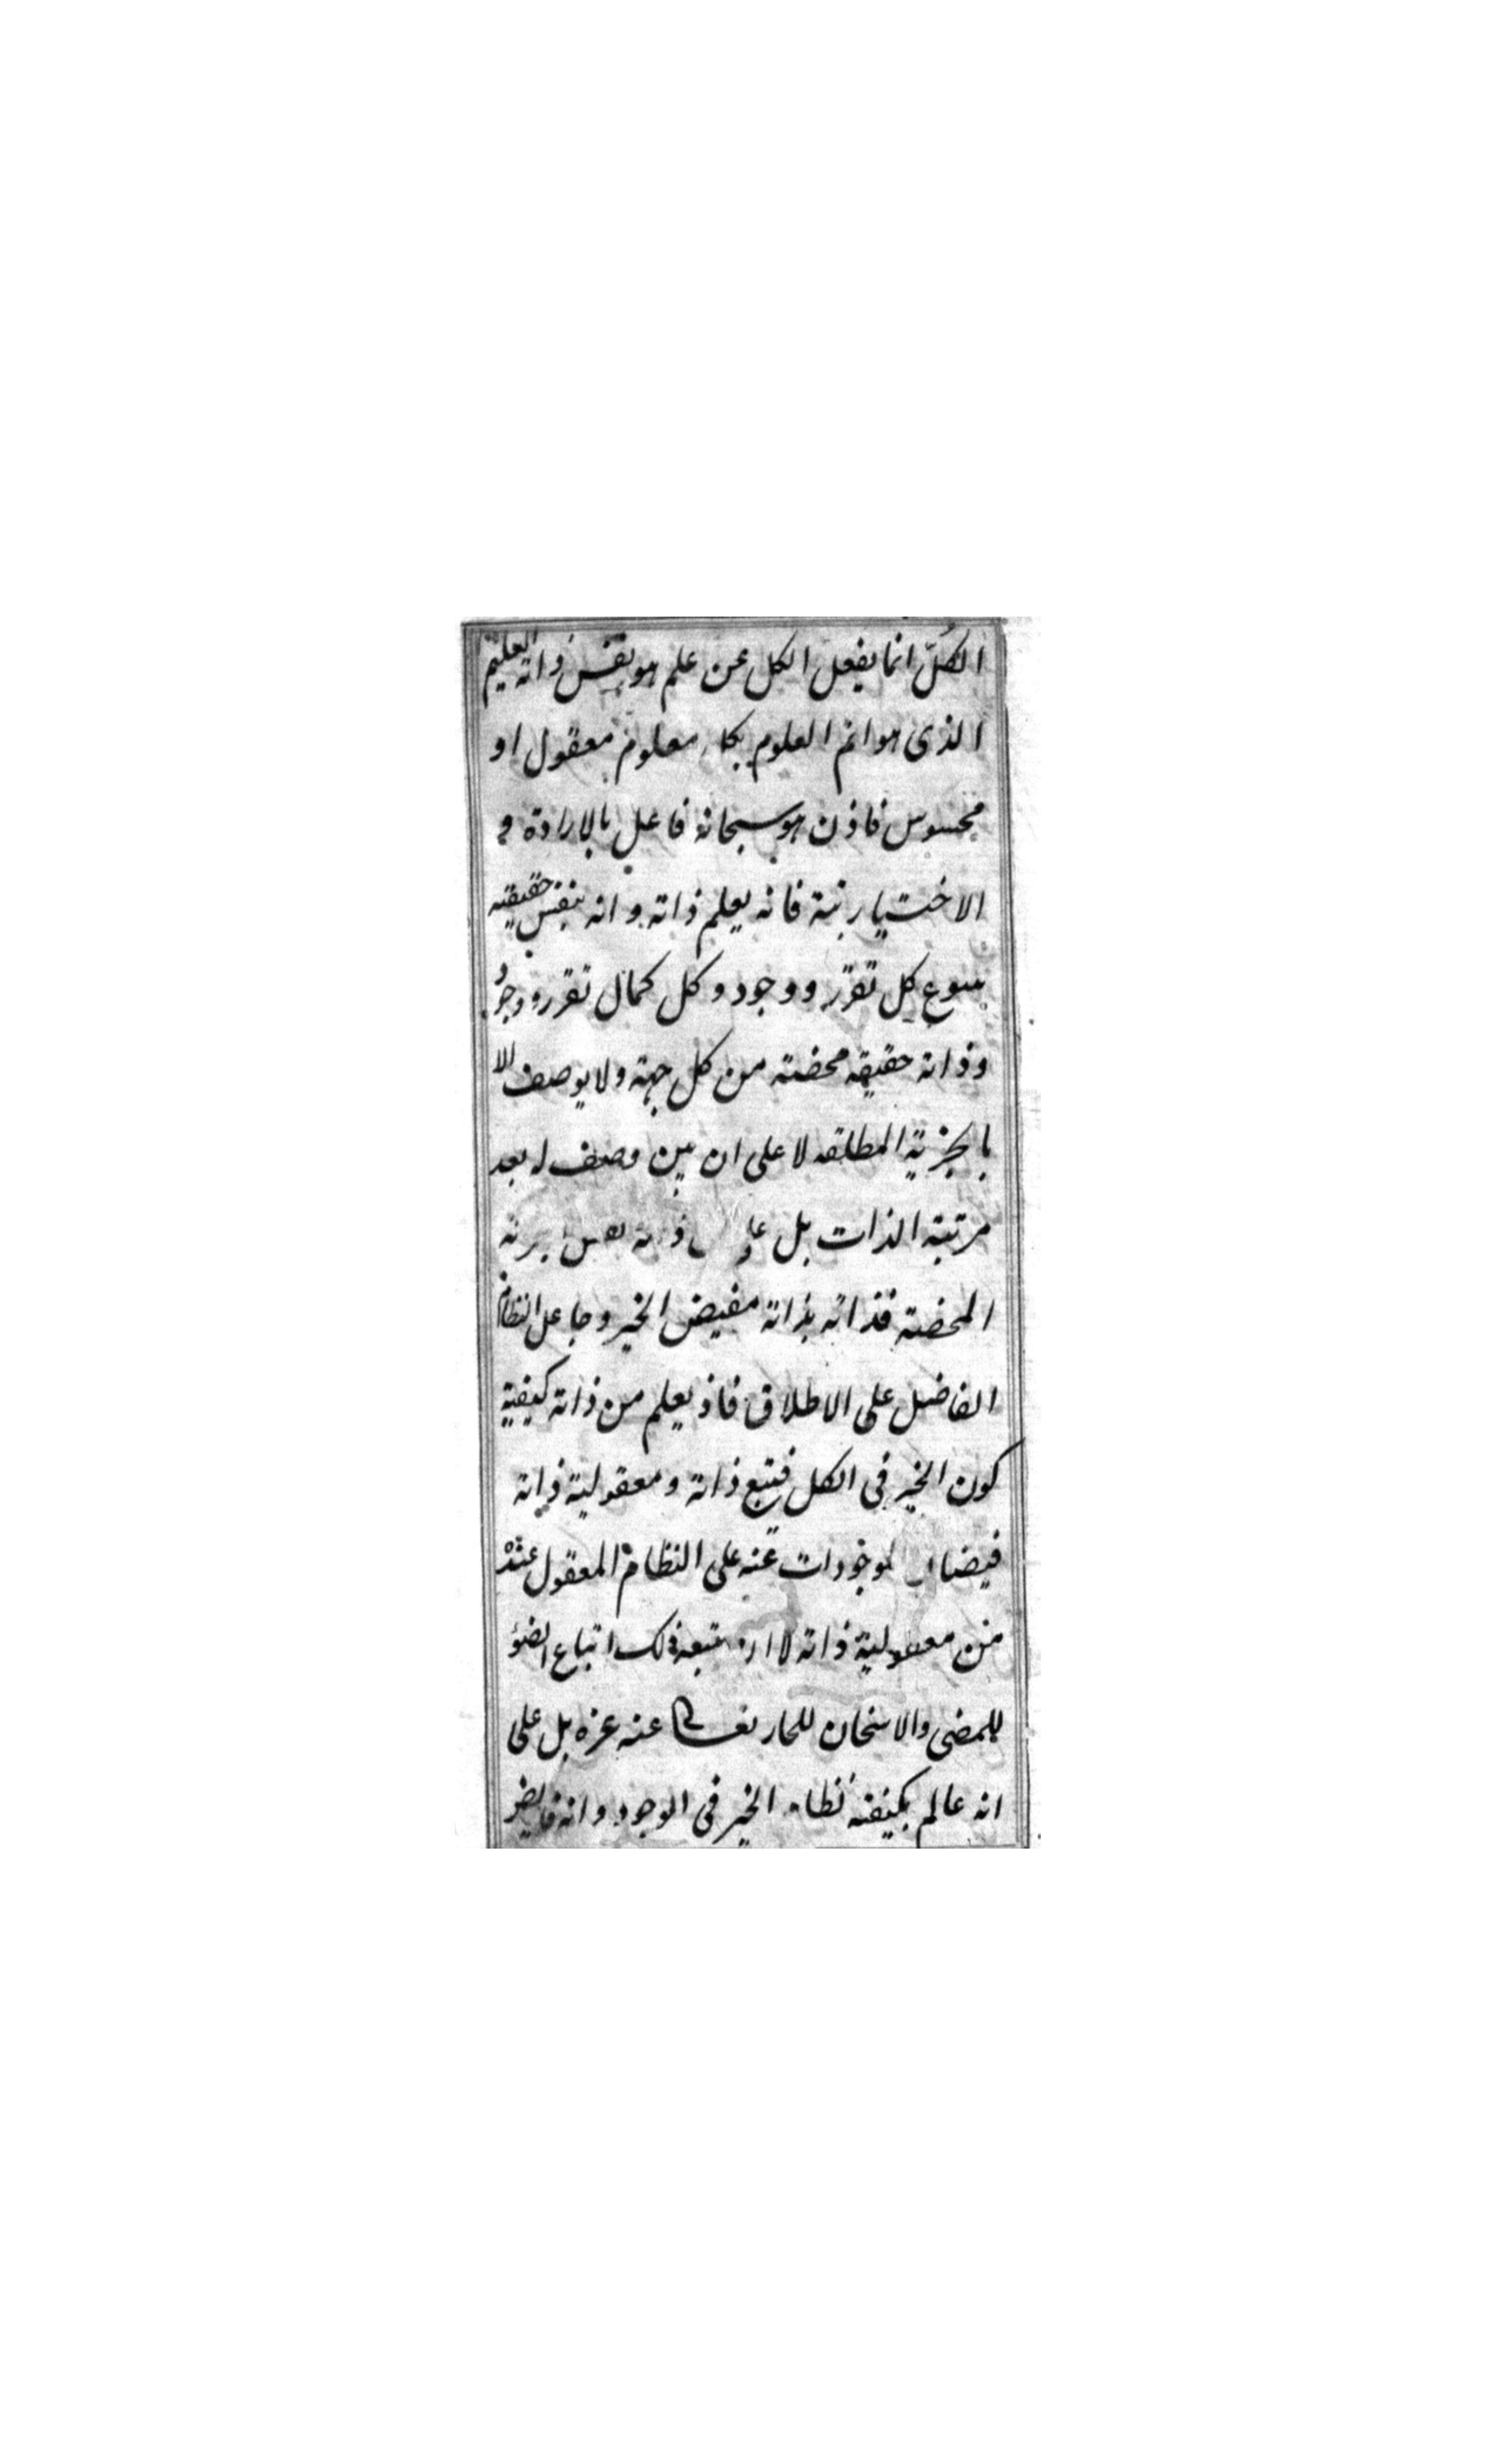 الكُلّ انما يفعل الكل عن علم هو بنفس ذاته العليم
الذى هو اتم العلوم بكل معلوم معقول او
محسوس فاذن هو سبحانه فاعل بالارادة و
الاختيار بتة فانه يعلم ذاته و انه بنفس حقيقته
ينبوع كل تقرّر و وجود و كل كمال تقرر و وجود
و ذاته حقيقه محضته من كل جهة و لا يوصف الا
المطلقه لا على ان بين وصف له بعد
مرتبة الذات بل
المحضته فذاته بذاته مفيض الخير و جاعل النظام
الفاضل على الاطلاق فاذ يعلم من ذاته كيفية
كون الخير فى الكل فتتبع ذاته و معقولية ذاته
فيضان الموجودات عنه على النظام المعقول عنده
من معقولية ذاته لا ان تتبعه ذلك اتباع الضوء
للمضى والاسخان للحار تعالى عنه عزه بل على
انه عالم بكيفته نظام الخير فى الوجود و انه فايض